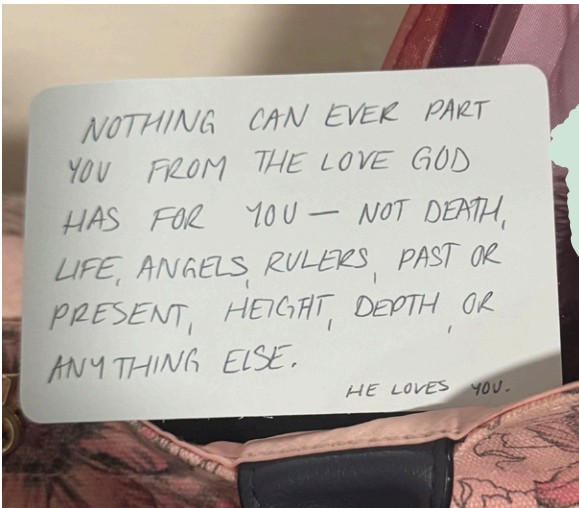 NOTHING CAN EVER PART
YOU FROM THE LOVE GOD
HAS FOR YOU — NOT DEATH,
LIFE, ANGELS, RULERS, PAST OR
PRESENT, HEIGHT, DEPTH, OR
ANYTHING ELSE.
HE LOVES YOU.